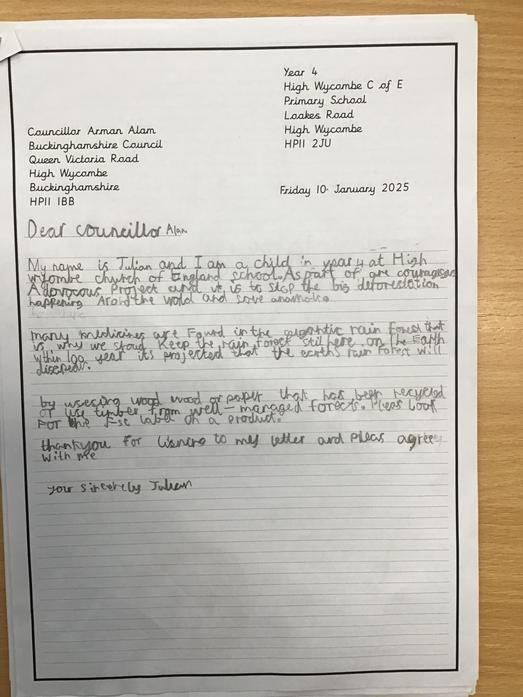 Year 4
High Wycombe C of E
Primary School
Loakes Road
High Wycombe
HP11 2JU
Councillor Arman Alam
Buckinghamshire Council
Queen Victoria Road
High Wycombe
Buckinghamshire
HP11 1BB
Friday 10 January 2025
Dear councillor Alam
My name is Julian and I am a child in year 4 at High
wycombe church of England school. As part of are courageous
Advocous Project and it is to stop the big deforestation
happening Arond the world and save
many medicines are Found in the gigantic rain forest that
is why we shoud keep the rain forest still here on the Earth
within 100 year its projected that the earths rain forest will
by useing wood wood or paper that has been recycled
or use timber from well-managed forests. Pleas look
For the Fsc label on a product.
thankyou for lisning to my letter and pleas agree
with me
your sincerely Julian